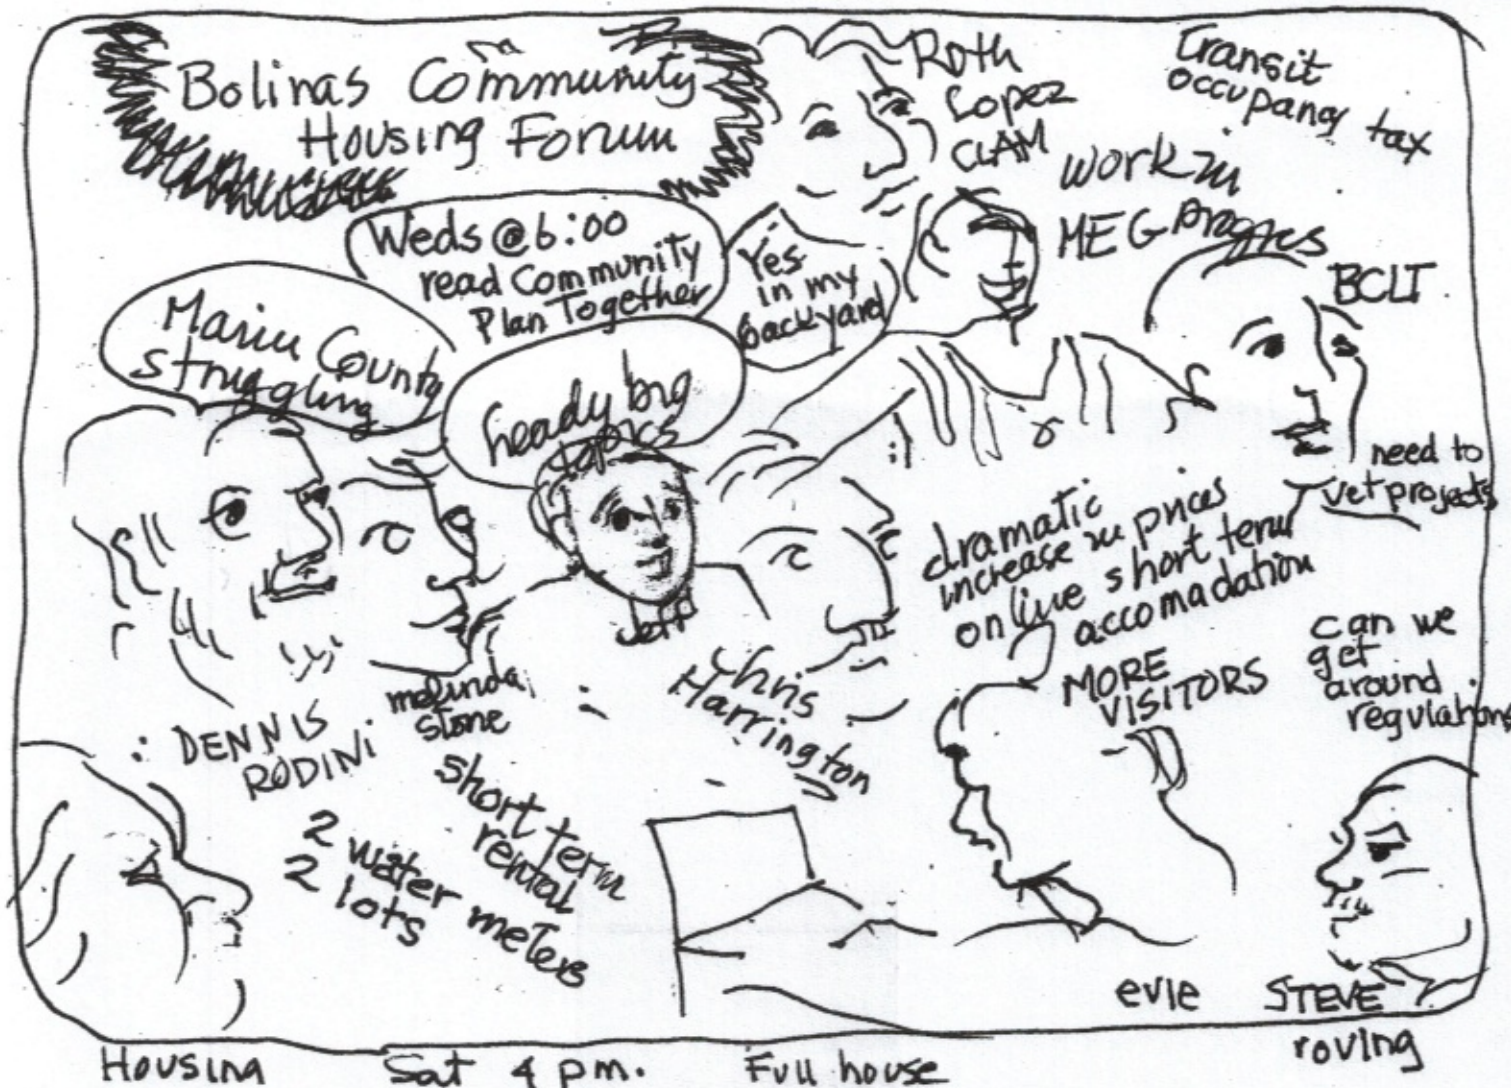 Bolinas Community
Housing Forum
Roth
Lopez
CLAM
Transit
occupancy tax
work in
progress
MEG
BCLT
Weds @ 6:00
read Community
Plan Together
Yes
in my
backyard
Marin County
struggling
heady big
topics
need to
vet projects
dramatic
increase in prices
on live short term
accomadation
MORE
VISITORS
can we
get
around
regulations
Jeff
Chris
Harrington
melinda
stone
: DENNIS
RODINi
short term
rental
2 water meters
2 lots
evie
STEVE
roving
Housing Sat 4 pm. Full house